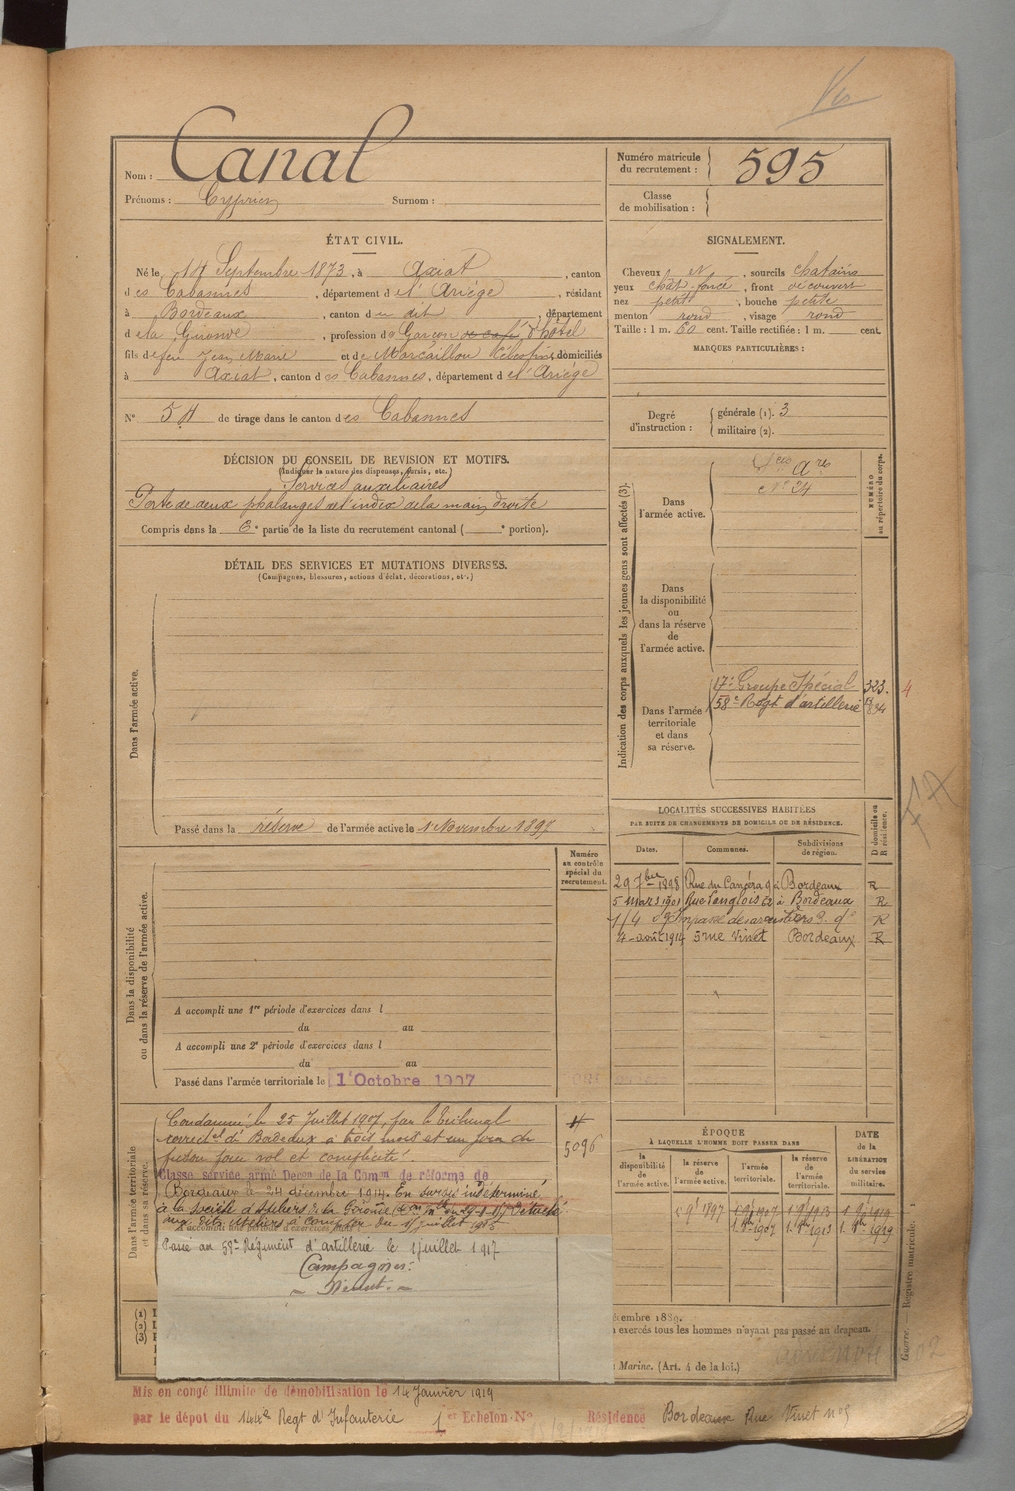 Nom : Canal
Prénoms : Cyprien Surnom :
Numéro matricule du recrutement : 595
Classe de mobilisation :
ÉTAT CIVIL.
Né le 14 Septembre 1873, à Axiat, canton
des Cabannes, département de l'Ariège, résidant
à Bordeaux, canton du dit, département
de la Gironde, profession de Garçon de café d'hôtel
fils de feu Jean Marie et de Marcaillou, domiciliés
à Axiat, canton des Cabannes, département de l'Ariège
N° 54 de tirage dans le canton des Cabannes
SIGNALEMENT.
Cheveux et, sourcils chatains
yeux chât-foncé, front découvert
nez petit, bouche petite
menton rond, visage rond
Taille : 1 m. 60 cent. Taille rectifiée : 1 m. cent.
MARQUES PARTICULIÈRES :
Degré d'instruction : générale (1). 3
militaire (2).
DÉCISION DU CONSEIL DE REVISION ET MOTIFS.
(Indiquer la nature des dispenses, sursis, etc.)
Services auxiliaires
Perte de deux phalanges de l'index de la main droite
Compris dans la 6e partie de la liste du recrutement cantonal ( e portion).
DÉTAIL DES SERVICES ET MUTATIONS DIVERSES.
(Campagnes, blessures, actions d'éclat, décorations, etc.)
Dans l'armée active.
Passé dans la réserve de l'armée active le 1 Novembre 1897
Indication des corps auxquels les jeunes gens sont affectés (3).
NUMÉRO au répertoire du corps.
Dans l'armée active.
N° 34
Dans la disponibilité ou dans la réserve de l'armée active.
Dans l'armée territoriale et dans sa réserve.
17e Groupe Spécial 323. 4
58e Regt d'artillerie
LOCALITÉS SUCCESSIVES HABITÉES
PAR SUITE DE CHANGEMENTS DE DOMICILE OU DE RÉSIDENCE.
Dates. Communes. Subdivisions de région. D domicile ou R résidence.
29 7bre 1898 Rue du 9 à Bordeaux R
5 mars 1901 Rue à Bordeaux R
Impasse des R
4 août 1914 5 rue Vinet Bordeaux R
Numéro au contrôle spécial du recrutement.
Dans la disponibilité ou dans la réserve de l'armée active.
A accompli une 1re période d'exercices dans l
du au
A accompli une 2e période d'exercices dans l
du au
Passé dans l'armée territoriale le 1 Octobre 1907
Dans l'armée territoriale et dans sa réserve.
Condamné le 25 Juillet 1907, par le tribunal
correctel de Bordeaux à trois mois et un jour de
prison pour vol et complicité.
5096
Classé service armé Décon de la Comon de réforme de
Bordeaux le 24 décembre 1914. En sursis indéterminé
à la Société d'Ateliers de la Gironde
aux dits Ateliers à compter du 1 juillet 1915
Passé au 58e Régiment d'artillerie le 1 juillet 1917
Campagnes:
Néant.
ÉPOQUE
À LAQUELLE L'HOMME DOIT PASSER DANS
la disponibilité de l'armée active. la réserve de l'armée active. l'armée territoriale. la réserve de l'armée territoriale.
DATE de la LIBÉRATION du service militaire.
1 9e 1897 1 9e 1907 1 9e 1913 1 9e 1919
(1)
(2)
(3)
décembre 1889.
exercés tous les hommes n'ayant pas passé au drapeau.
Marine. (Art. 4 de la loi.)
Guerre. — Registre matricule. 1
Mis en congé illimité de démobilisation le 14 Janvier 1919
par le dépot du 144e Regt d'Infanterie 1er Echelon No Résidence Bordeaux Rue Vinet no 5